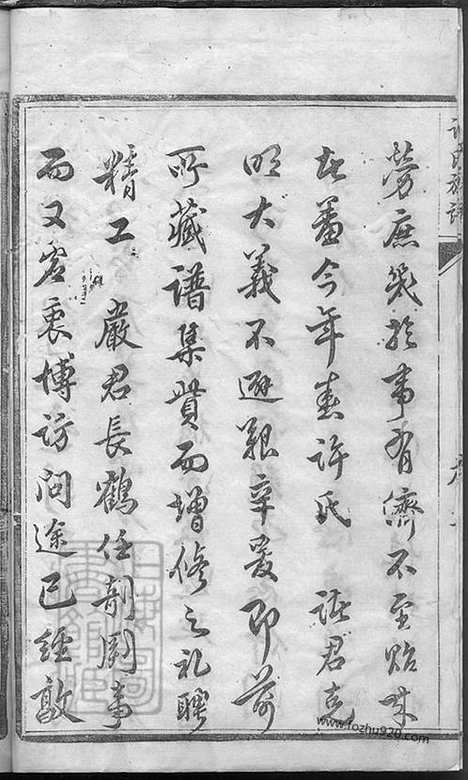 勞庶幾於事有濟不至貽誚
於蓋今年春許氏 諸君克
明大義不避艱辛爰即前
所藏譜集貲而增修之礼聘
精工 嚴君長鶴任剞劂事
而又虛衷博訪問途已經敦
www.fozhu920.com